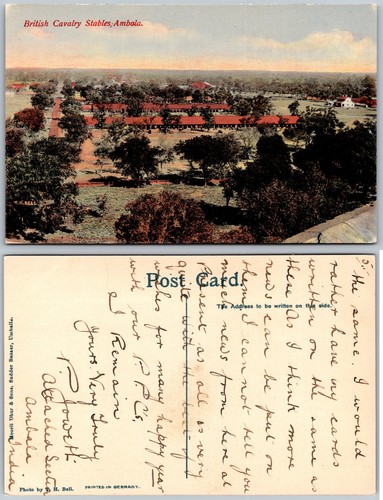 British Cavalry Stables, Ambala.
Post Card.
The Address to be written on this side.
Moorli Dhur & Sons, Sudder Bazaar, Umballa.
Photo by T. H. Bell.
PRINTED IN GERMANY.
the same. I would
rather have my cards
written on the same as
these as I think more
news can be put on
them. I cannot tell you
much news from here at
Present as all is very
quite with the best of
wishes for many happy year
with our P.P.C's,
I Remain
Yours Very Truly
P. Jowett
Attached Sect
Ambala
India